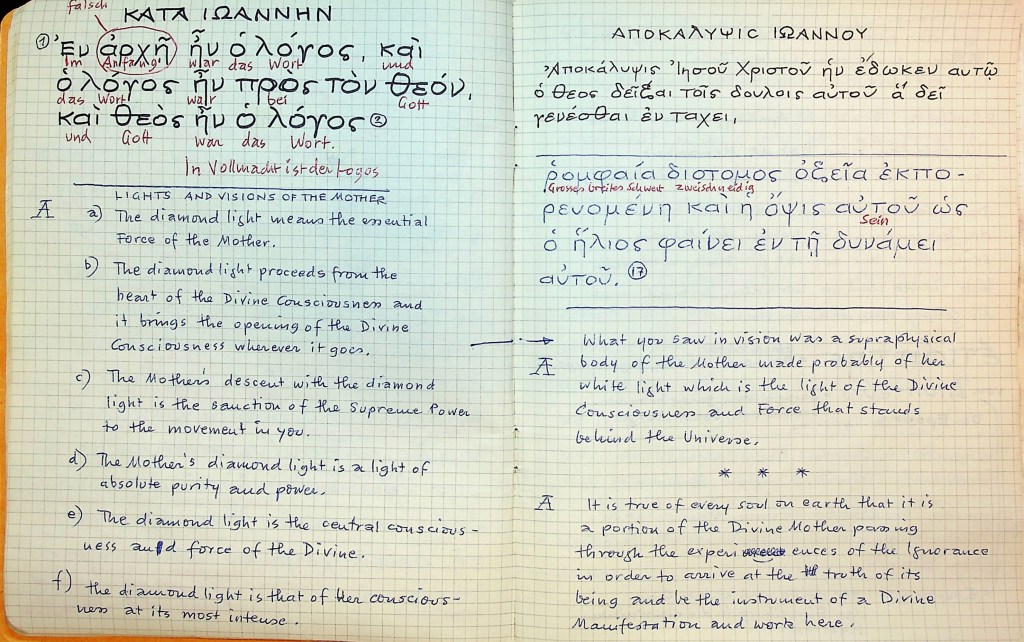 falsch
ΚΑΤΑ ΙΩΑΝΝΗΝ
① Ἐν ἀρχῇ ἦν ὁ λόγος, καὶ
im Anfang war das Wort und
ὁ λόγος ἦν πρὸς τὸν θεόν,
das Wort war bei Gott
καὶ θεὸς ἦν ὁ λόγος ②
und Gott war das Wort.
In Vollmacht ist der Logos
LIGHTS AND VISIONS OF THE MOTHER
a) The diamond light means the essential
Force of the Mother.
b) The diamond light proceeds from the
heart of the Divine Consciousness and
it brings the opening of the Divine
Consciousness wherever it goes.
c) The Mother's descent with the diamond
light is the sanction of the Supreme Power
to the movement in you.
d) The Mother's diamond light is a light of
absolute purity and power.
e) The diamond light is the central conscious-
ness and force of the Divine.
f) the diamond light is that of her conscious-
ness at its most intense.
ΑΠΟΚΑΛΥΨΙC ΙΩΑΝΝΟΥ
Ἀποκάλυψις Ἰησοῦ Χριστοῦ ἡν ἐδωκεν αυτῷ
ὁ θεος δεῖξαι τοῖς δουλοις αὐτοῦ ἃ δεῖ
γενέσθαι ἐν ταχει,
ῥομφαία δίστομος ὀξεῖα ἐκπο-
Grosses breites Schwert zweischneidig
ρευομένη καὶ ἡ ὄψις αὐτοῦ ὡς
Sein
ὁ ἥλιος φαίνει ἐν τῇ δυνάμει
αὐτοῦ. ⑰
What you saw in vision was a supraphysical
body of the Mother made probably of her
white light which is the light of the Divine
Consciousness and Force that stands
behind the Universe.
* * *
It is true of every soul on earth that it is
a portion of the Divine Mother passing
through the experiences of the Ignorance
in order to arrive at the truth of its
being and be the instrument of a Divine
Manifestation and work here.